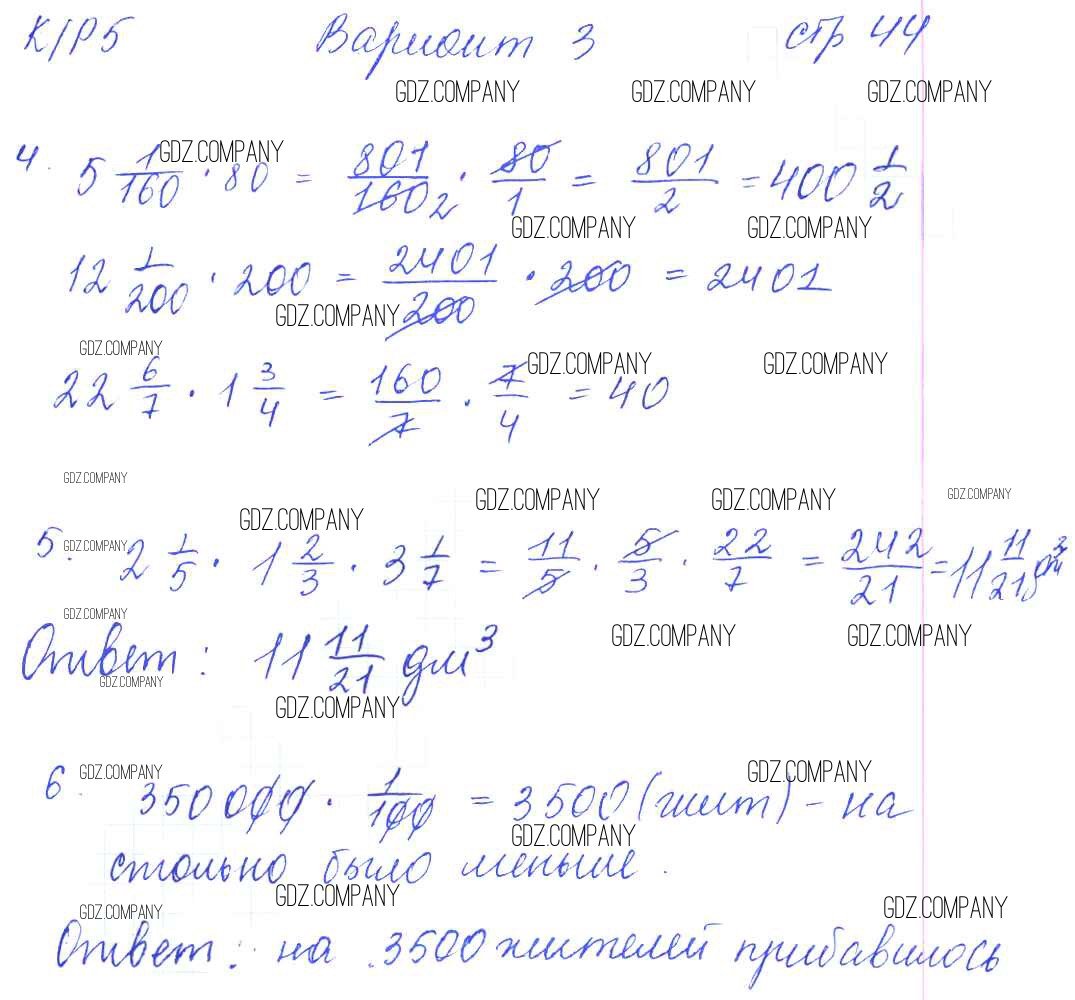 К/Р5 Вариант 3 стр 44
GDZ.COMPANY GDZ.COMPANY GDZ.COMPANY
GDZ.COMPANY
4. 5 1/160 · 80 = 801/160 2 · 80/1 = 801/2 = 400 1/2
GDZ.COMPANY GDZ.COMPANY
12 1/200 · 200 = 2401/200 · 200 = 2401
GDZ.COMPANY
GDZ.COMPANY GDZ.COMPANY GDZ.COMPANY
22 6/7 · 1 3/4 = 160/7 · 7/4 = 40
GDZ.COMPANY GDZ.COMPANY GDZ.COMPANY GDZ.COMPANY
GDZ.COMPANY
5. GDZ.COMPANY 2 1/5 · 1 2/3 · 3 1/7 = 11/5 · 5/3 · 22/7 = 242/21 = 11 11/21 дм³
GDZ.COMPANY
Ответ: 11 11/21 дм³ GDZ.COMPANY GDZ.COMPANY
GDZ.COMPANY
GDZ.COMPANY
GDZ.COMPANY GDZ.COMPANY
6. 350000 · 1/100 = 3500 (жит) - на
GDZ.COMPANY
столько было меньше.
GDZ.COMPANY
GDZ.COMPANY GDZ.COMPANY
Ответ: на 3500 жителей прибавилось